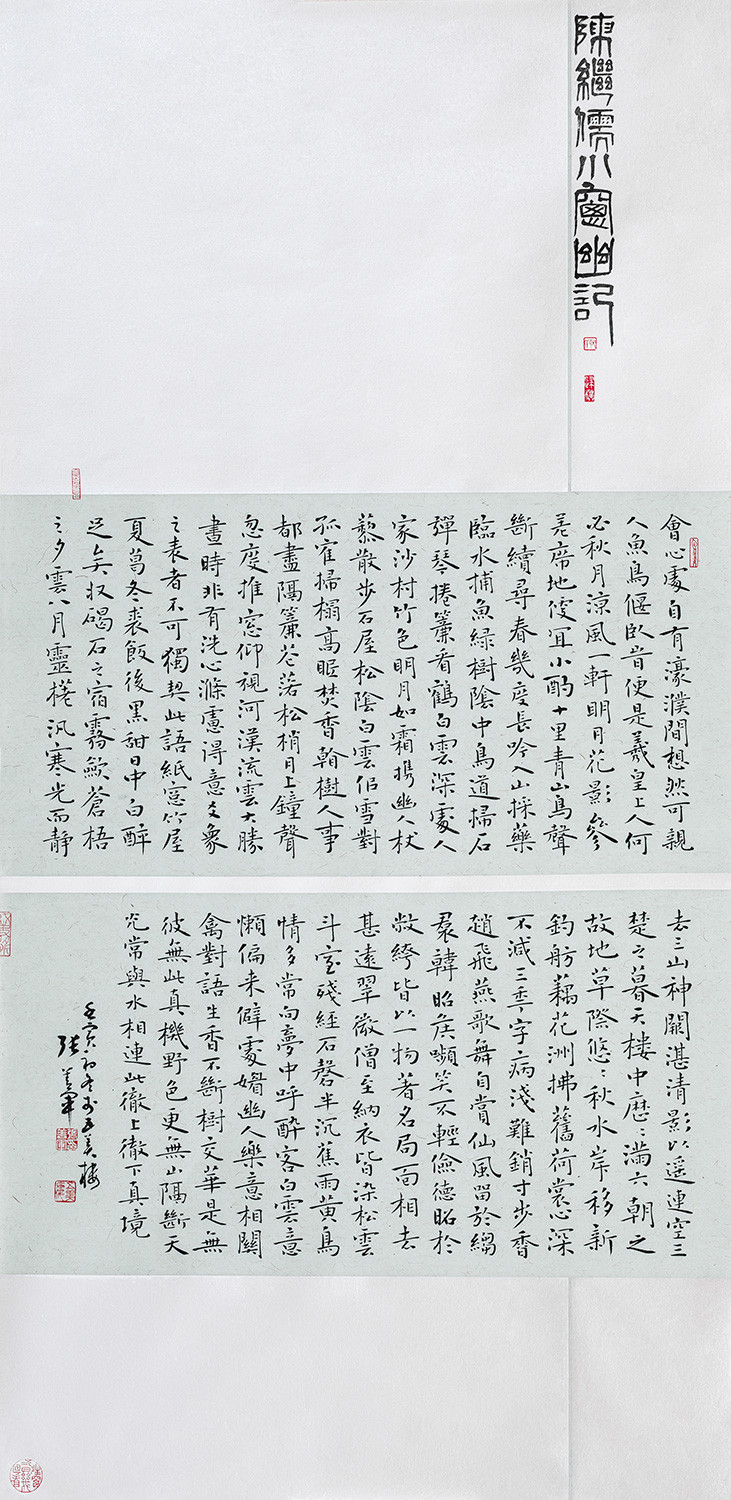 陳繼儒小窗幽記
會心處自有濠濮間想然可親
人魚鳥偃臥岩便是羲皇上人何
必秋月涼風一軒明月花影參
差席地便宜小酌十里青山鳥聲
斷續尋春幾度長吟入山採藥
臨水捕魚綠樹陰中鳥道掃石
彈琴捲簾看鶴白雲深處人
家沙村竹色明月如霜攜幽人杖
藜散步石屋松陰白雲侶雪對
孤崔掃榻高眠焚香翰樹人事
都盡隔簾花落松梢月上鐘聲
忽度推窓仰視河漢流雲大勝
晝時非有洗心滌慮得意爻象
之表者不可獨契此語紙窓竹屋
夏葛冬裘飯後黑甜日中白醉
足矣收碣石之宿霧歛蒼梧
之夕雲八月靈槎汎寒光而靜
去三山神闕湛清影以遥連空三
楚之暮天樓中歷〻滿六朝之
故地草際悠〻秋水岸移新
釣舫藕花洲拂舊荷裳心深
不減三季字病淺難銷寸步香
趙飛燕歌舞自賞仙風留於縐
裠韓昭侯嚬笑不輕儉德昭於
敝絝皆以一物著名局面相去
甚遠翠微僧至衲衣皆染松雲
斗室殘經石磬半沉蕉雨黃鳥
情多常向夢中呼醉客白雲意
懶偏来僻處媚幽人樂意相關
禽對語生香不斷樹交華是無
彼無此真機野色更無山隔斷天
光常與水相連此徹上徹下真境
壬寅初冬於五美樓
張美軍